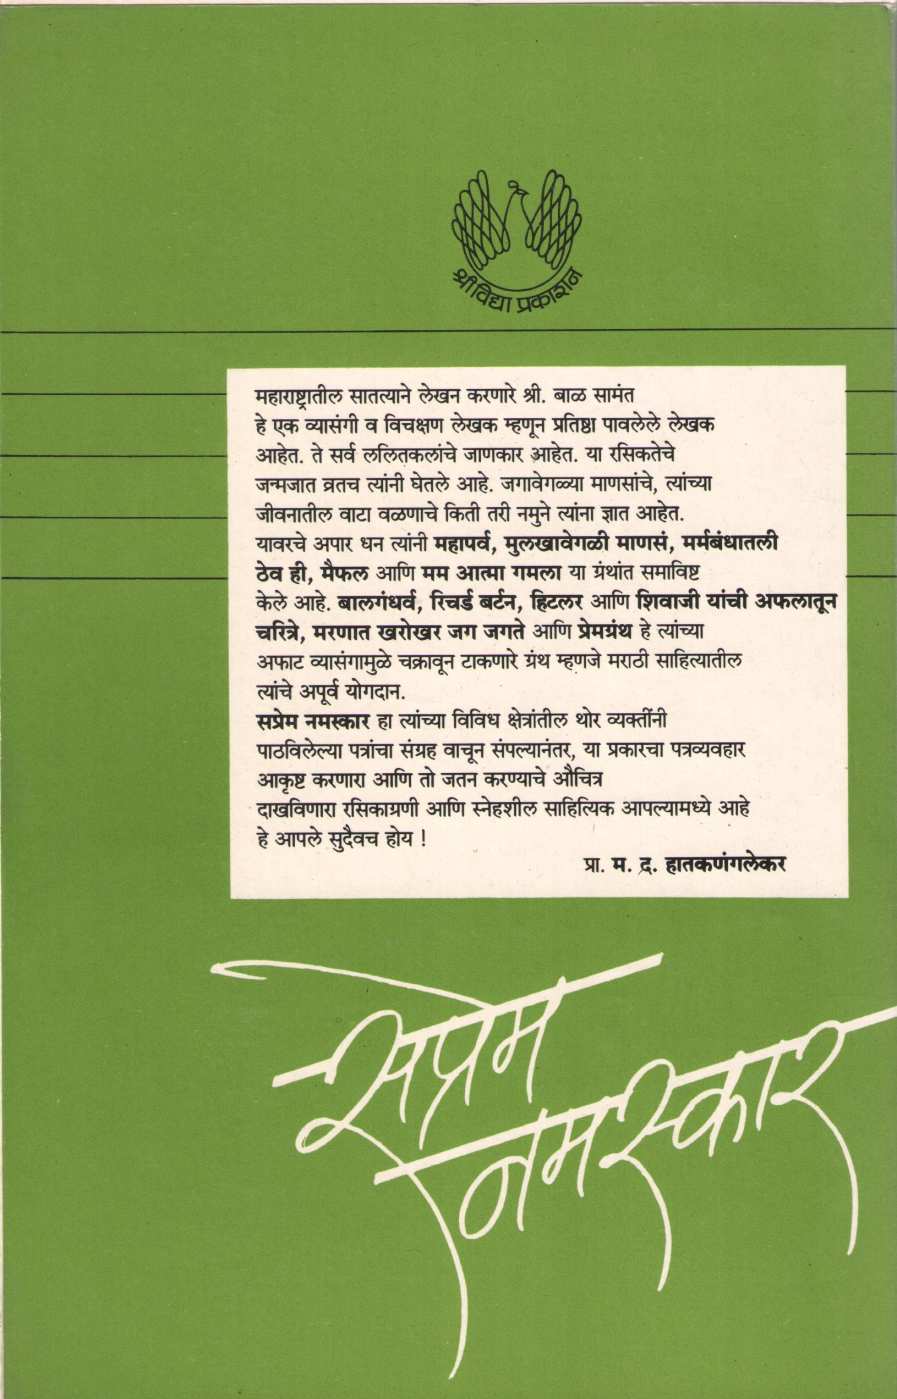 श्रीविद्या प्रकाशन
महाराष्ट्रातील सातत्याने लेखन करणारे श्री. बाळ सामंत
हे एक व्यासंगी व विचक्षण लेखक म्हणून प्रतिष्ठा पावलेले लेखक
आहेत. ते सर्व ललितकलांचे जाणकार आहेत. या रसिकतेचे
जन्मजात व्रतच त्यांनी घेतले आहे. जगावेगळ्या माणसांचे, त्यांच्या
जीवनातील वाटा वळणाचे किती तरी नमुने त्यांना ज्ञात आहेत.
यावरचे अपार धन त्यांनी महापर्व, मुलखावेगळी माणसं, मर्मबंधातली
ठेव ही, मैफल आणि मम आत्मा गमला या ग्रंथांत समाविष्ट
केले आहे. बालगंधर्व, रिचर्ड बर्टन, हिटलर आणि शिवाजी यांची अफलातून
चरित्रे, मरणात खरोखर जग जगते आणि प्रेमग्रंथ हे त्यांच्या
अफाट व्यासंगामुळे चक्रावून टाकणारे ग्रंथ म्हणजे मराठी साहित्यातील
त्यांचे अपूर्व योगदान.
सप्रेम नमस्कार हा त्यांच्या विविध क्षेत्रांतील थोर व्यक्तींनी
पाठविलेल्या पत्रांचा संग्रह वाचून संपल्यानंतर, या प्रकारचा पत्रव्यवहार
आकृष्ट करणारा आणि तो जतन करण्याचे औचित्र
दाखविणारा रसिकाग्रणी आणि स्नेहशील साहित्यिक आपल्यामध्ये आहे
हे आपले सुदैवच होय !
प्रा. म. द. हातकणंगलेकर
सप्रेम
नमस्कार